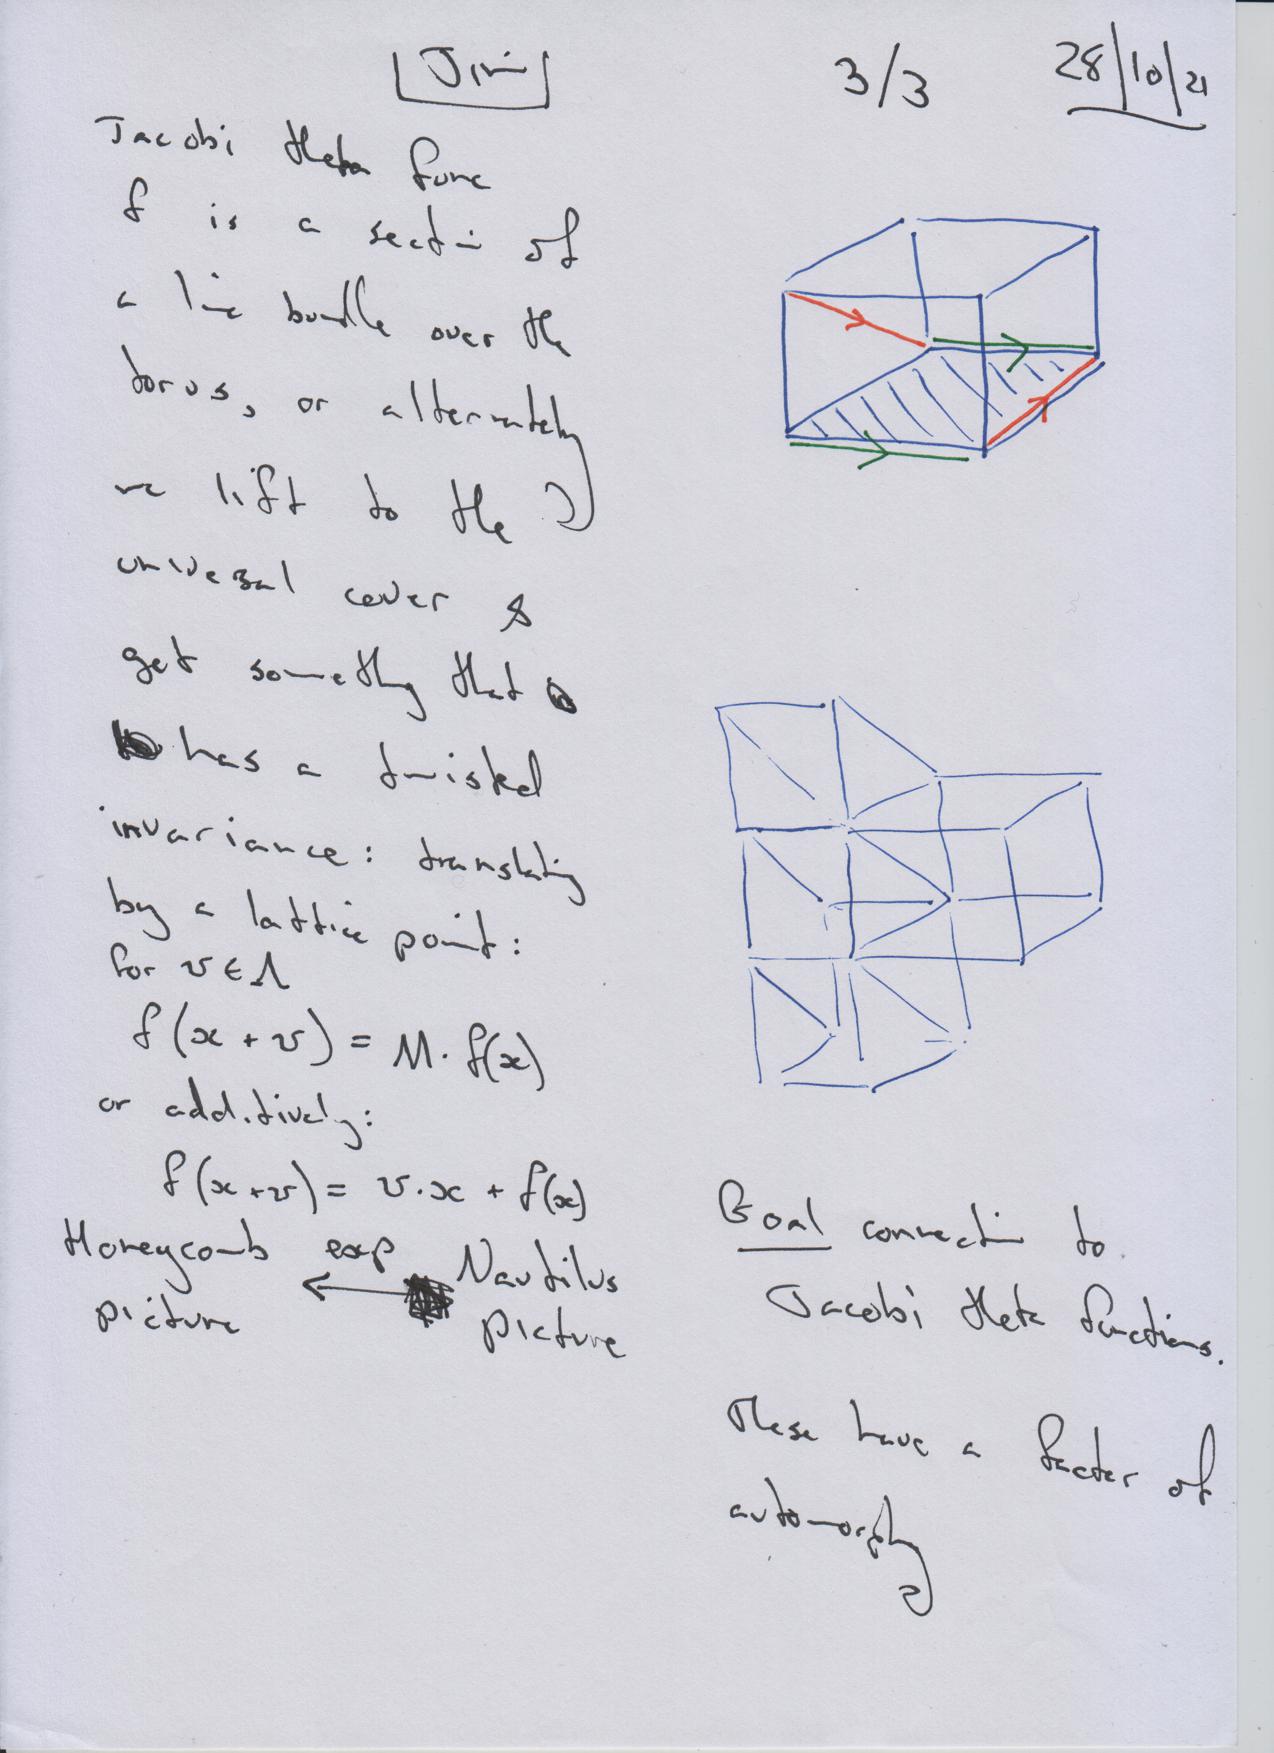 Jim
3/3
28/10/21
Jacobi theta func
f is a section of
a line bundle over the
torus, or alternately
we lift to the
universal cover &
get something that
has a twisted
invariance: translating
by a lattice point:
for v ∈ Λ
f(x + v) = M · f(x)
or additively:
f(x+v) = v·x + f(x)
Honeycomb exp Nautilus
picture ← picture
Goal connection to
Jacobi theta functions.
These have a factor of
automorphy